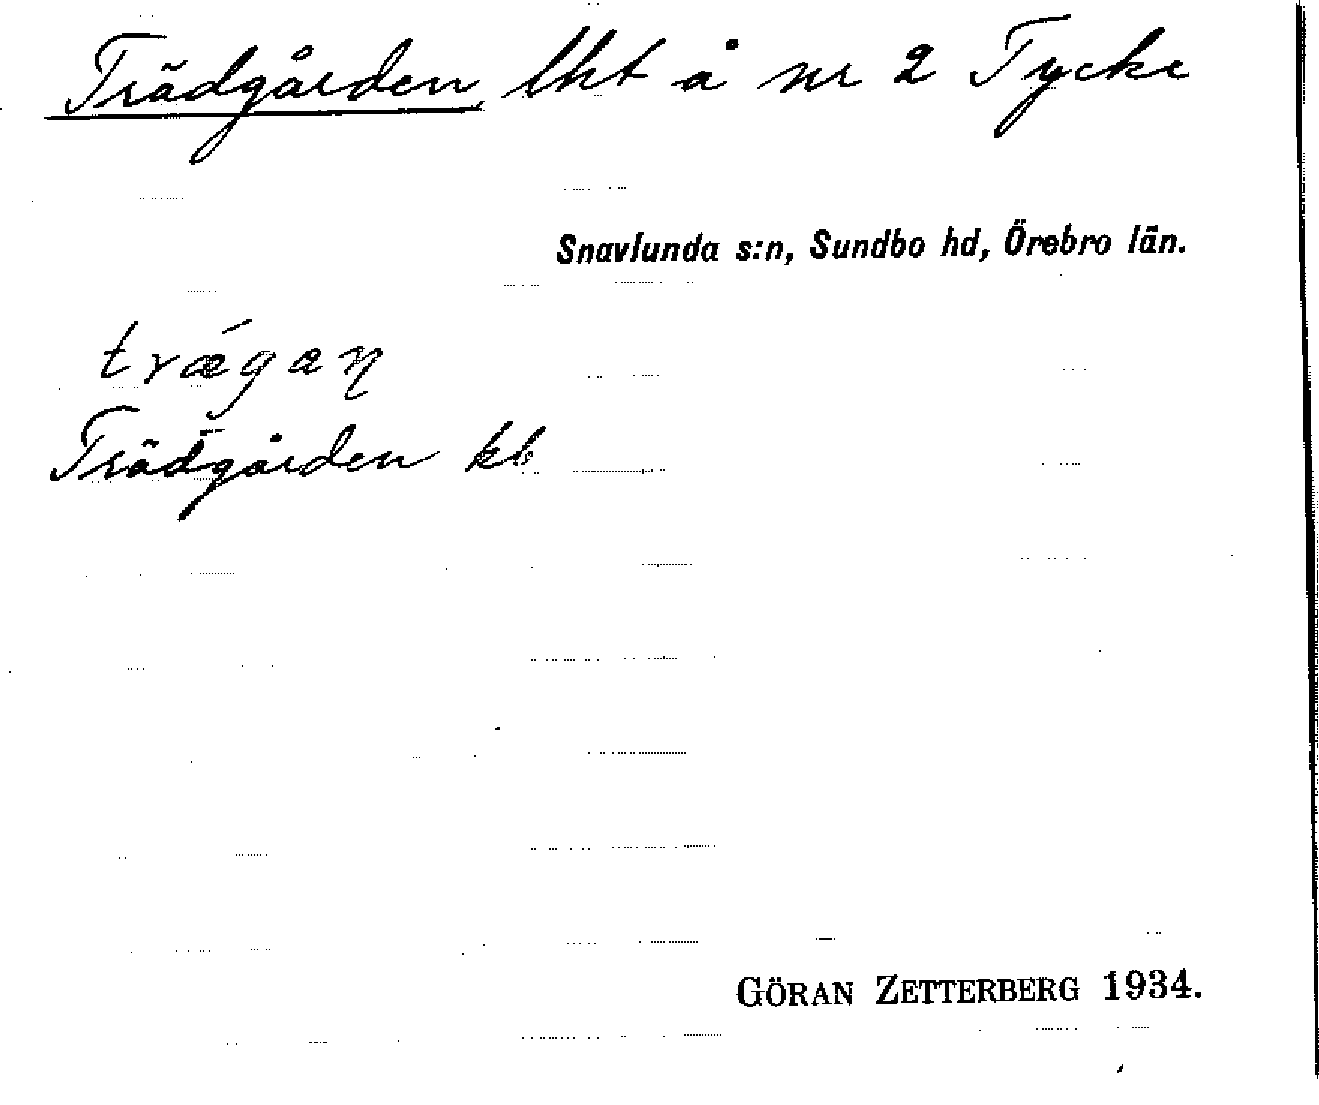 Trädgården, lht å nr 2 Tycke
Snavlunda s:n, Sundbo hd, Örebro län.
trǽgaŋ
Trädgården kb
GÖRAN ZETTERBERG 1934.